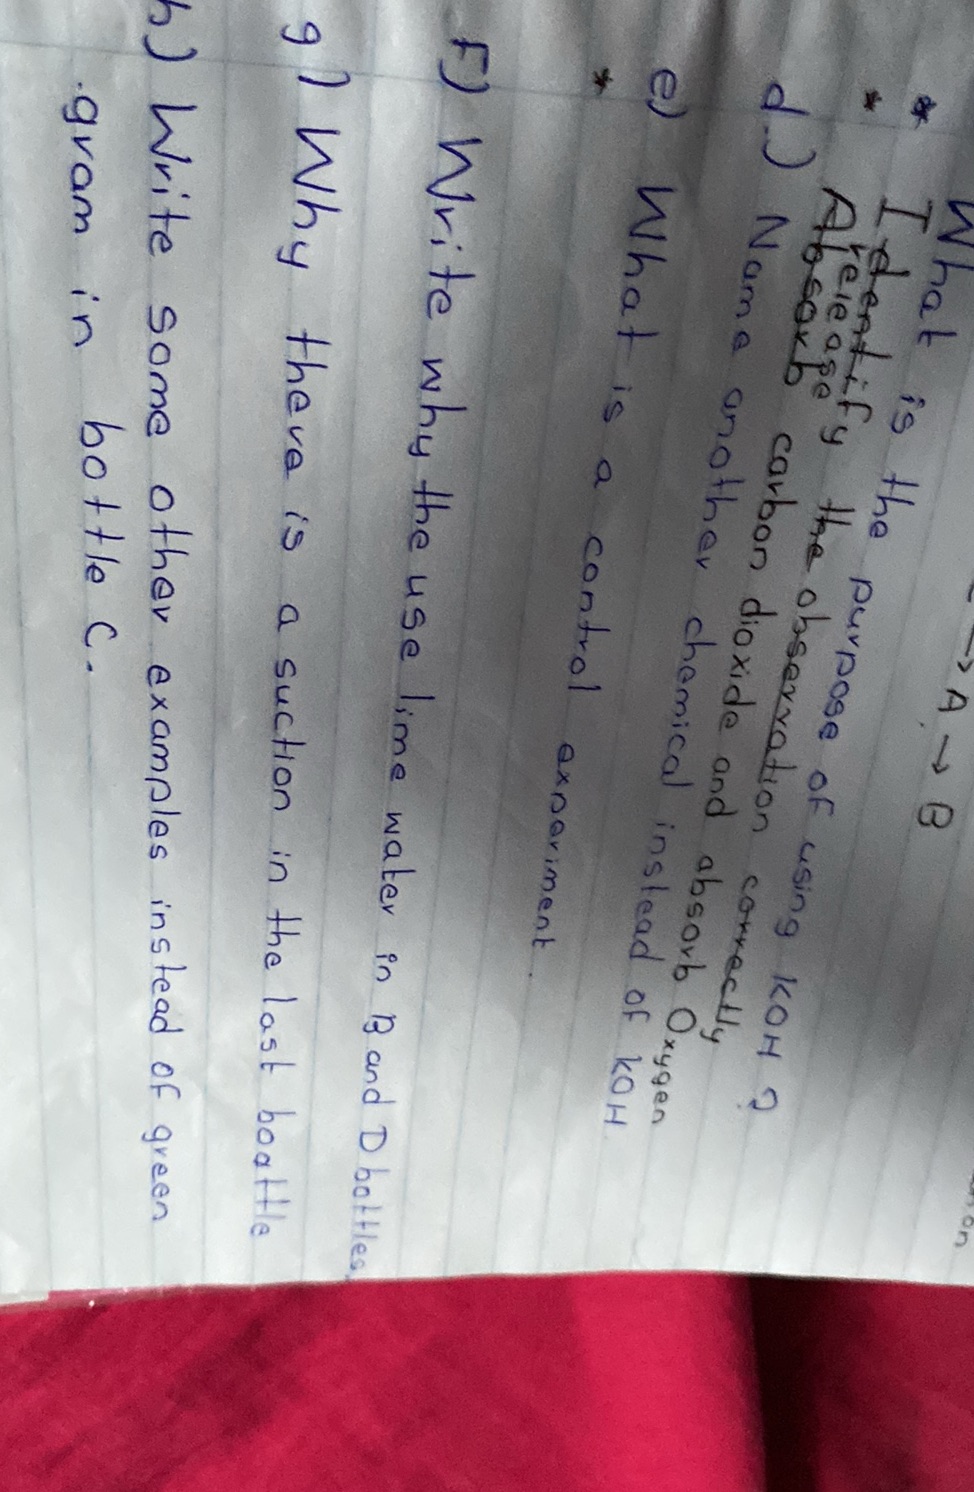 → A → B
What is the purpose of using KOH ?
Identify the observation correctly
release
Absorb carbon dioxide and absorb Oxygen
d.) Name another chemical instead of KOH
e) What is a control experiment.
F) Write why the use lime water in B and D bottles.
g) Why there is a suction in the last boattle
h) Write some other examples instead of green
gram in bottle C.